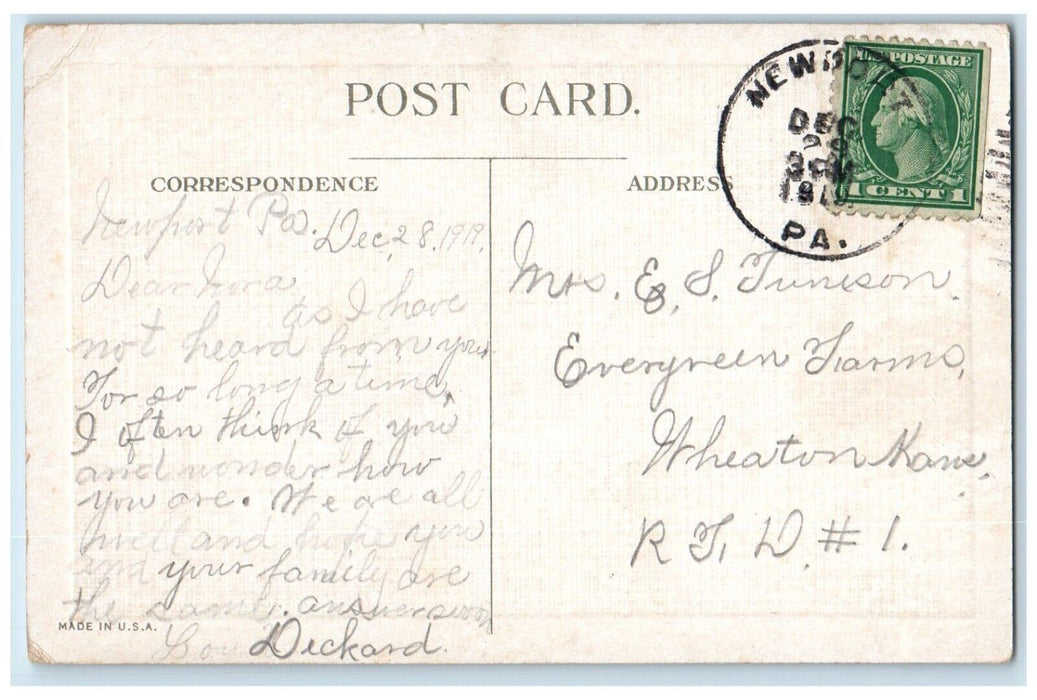 POST CARD.
CORRESPONDENCE
Newport Pa. Dec, 28, 1919.
Dear Nora
as I have
not heard from you
For so long a time,
I often think of you
and wonder how
you are. We are all
well and hope you
and your family are
the same. answer soon
Deckard.
MADE IN U.S.A.
ADDRESS
NEWPORT
DEC
28
1919
PA.
U.S. POSTAGE
1 CENT 1
Mrs. E. S. Tunison.
Evergreen Farms,
Wheaton Kans,
R F. D # 1.